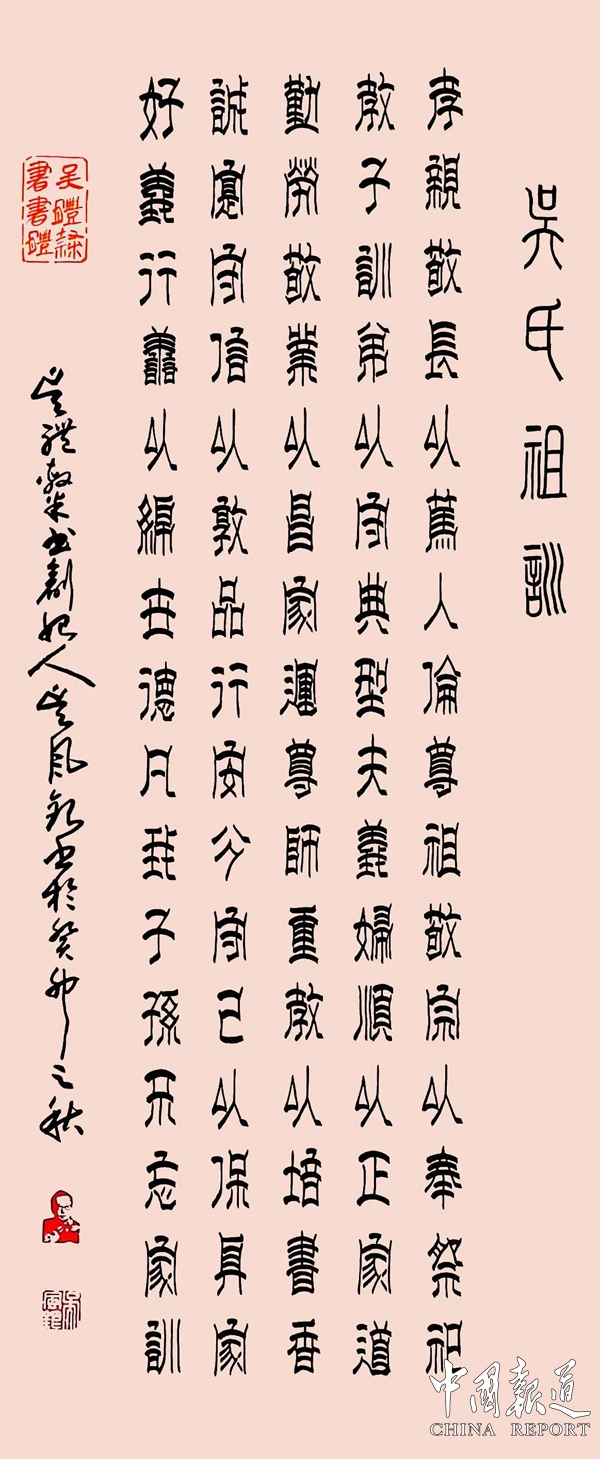 吳氏祖訓
孝親敬長以篤人倫尊祖敬宗以奉祭祀
教子訓弟以守典型夫義婦順以正家道
勤勞敬業以昌家運尊師重教以培書香
誠寔守信以敦品行安分守己以保具家
好義行善以綿世德凡我子孫不忘家訓
吴體隸書創始人吴風書於癸卯之秋
吴體隸
書書體
中國報道
CHINA REPORT